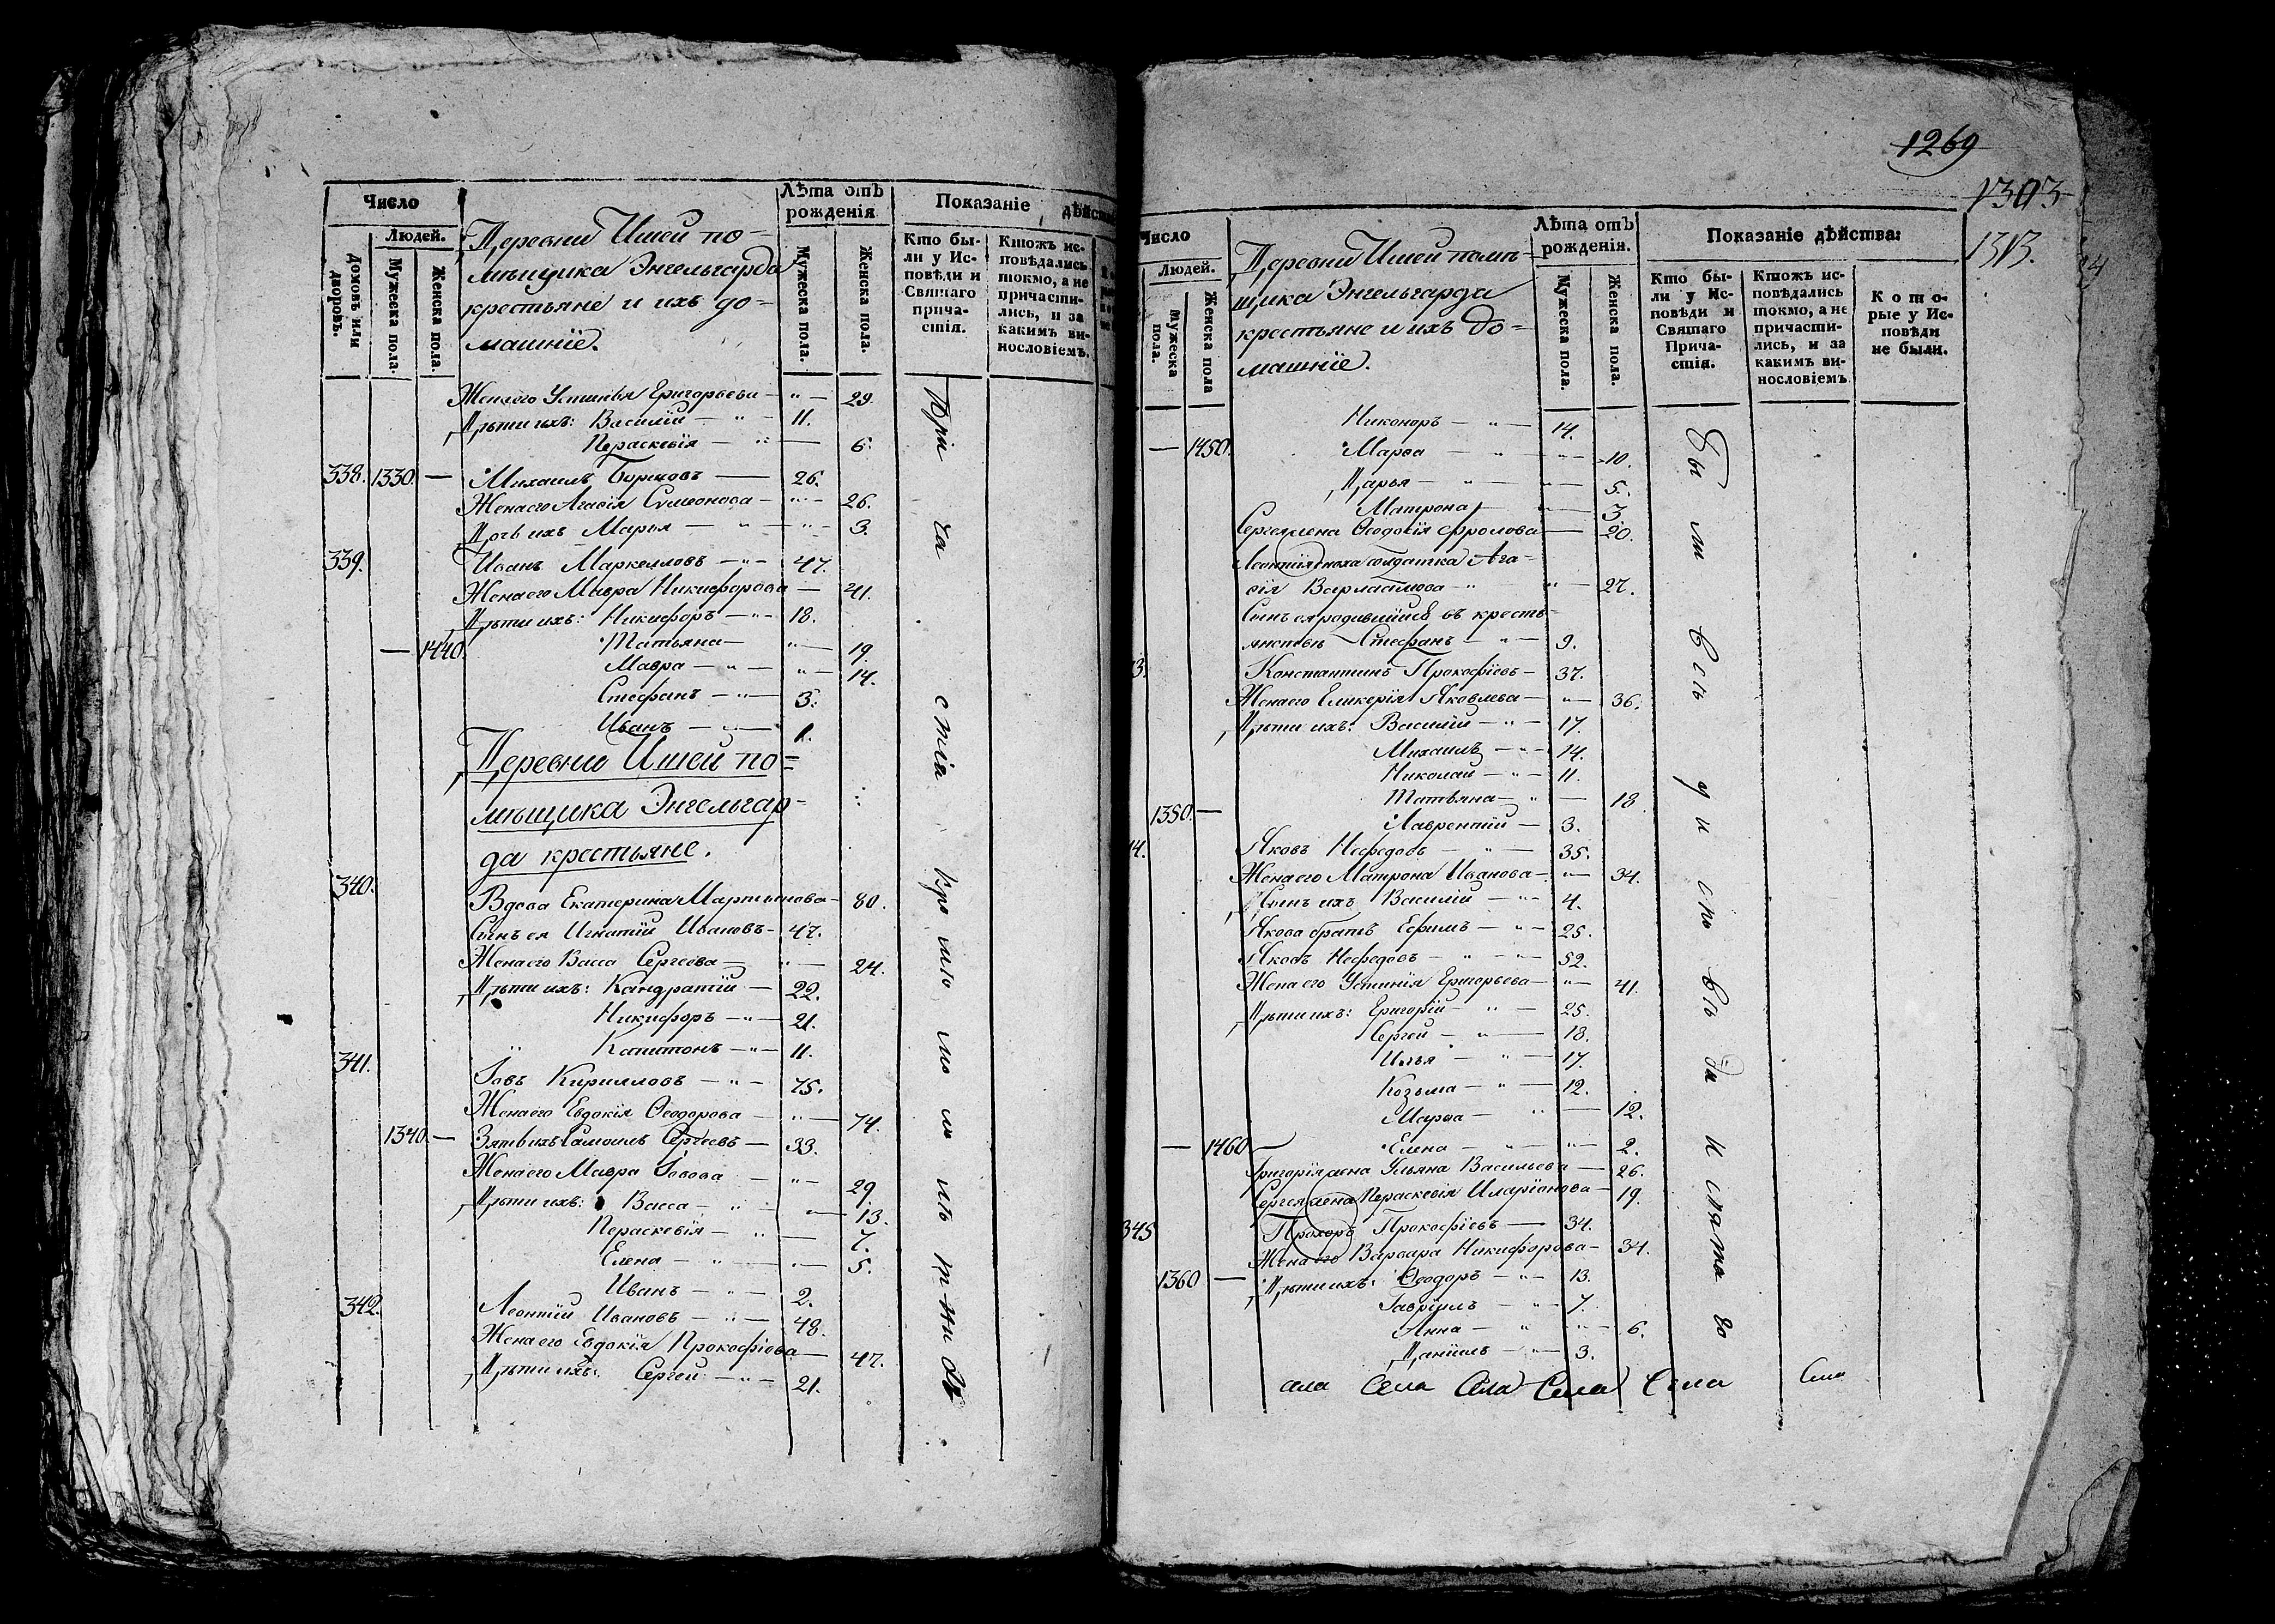 Число
Людей.
Домовъ или дворовъ.
Мужеска пола.
Женска пола.
Деревни Ишей по=
мѣщика Энгельгарда
крестьяне и ихъ до=
машнїе.
Лѣта отъ рожденія
Мужеска пола.
Женска пола.
Показаніе
Кто бы-
ли у Ис-
повѣди и
Святаго
прича-
стія.
Ктожъ ис-
повѣдались
токмо, а не
причасти-
лись, и за
какимъ ви-
нословіемъ.
Жена его Устинья Григорьева — " — 29.
Дѣти ихъ: Василій — " — 11.
Параскевїя — " — 6.
338. 1330. — Михаилъ — 26.
Жена его Агафїя Симеонова — " — 26.
Дочь ихъ Марья — " — " — 3.
339. Иванъ Маркелловъ — " — 47.
Жена его Мавра Никифорова — 41.
Дѣти ихъ: Никифоръ — " — 18.
— 1440. Татьяна — " — 19.
Мавра — " — " — 14.
Стефанъ — " — 3.
Иванъ — " — 1.
Деревни Ишей по=
мѣщика Энгельгар=
да крестьяне.
340. Вдова Екатерина Мартынова — 80.
Сынъ ея Игнатїй Ивановъ — 47.
Жена его Васса Сергеева — " — 24.
Дѣти ихъ: Кандратїй — 22.
Никифоръ — " — 21.
Капитонъ — " — 11.
341. Іовъ Кирилловъ — " — 75.
Жена его Евдокїя Ѳеодорова — " — 74.
1340. — Зять ихъ Самоилъ Сергеевъ — 33.
Жена его Мавра Іовова — " — 29.
Дѣти ихъ: Васса — " — " — 13.
Параскевїя — " — 7.
Елена — " — " — 5.
Иванъ — " — 2.
342. Леонтїй Ивановъ — " — 48.
Жена его Евдокїя Прокофїева — 47.
Дѣти ихъ: Сергей — " — 21.
При
ча
стїя
1269
1303
1313.
Число
Людей.
Мужеска пола.
Женска пола
Деревни Ишей помѣ=
щика Энгельгарда
крестьяне и ихъ до=
машнїе.
Лѣта отъ рожденія.
Мужеска пола.
Женска пола.
Показаніе дѣйства:
Кто бы-
ли у Ис-
повѣди и
Святаго
Прича-
стія.
Ктожъ ис-
повѣдались
токмо, а не
причасти-
лись, и за
какимъ ви-
нословіемъ.
Кото-
рые у Ис-
повѣди
не были.
Никоноръ — " — 14.
— 1450. Марѳа — " — " — 10.
Дарья — " — " — 5.
Матрона — " — 3
Сергея жена Ѳеодосїя Фролова — 20.
Леонтїя сноха солдатка Ага=
фїя Варламова — " " — 27.
Сынъ ея родившїйся въ кресть=
янствѣ Стефанъ — " — 9.
3. Константинъ Прокофїевъ — 37.
Жена его Гликерїя Яковлева — " — 36.
Дѣти ихъ: Василїй — " — 17.
Михаилъ — " — 14.
Николай — " — 11.
Татьяна — " — 18
1350. — Лаврентїй — 3.
14. Яковъ Нефедовъ — " — 35.
Жена его Матрона Иванова — " — 34.
Сынъ ихъ Василїй — " — 4.
Якова братъ Ефимъ — " — 25.
Яковъ Нефедовъ — " — 52.
Жена его Устинїя Григорьева — " — 41.
Дѣти ихъ: Григорїй — " — 25.
Сергей — " — 18.
Илья — " — 17.
Козьма — " — 12.
Марѳа — " — 12.
— 1460 — Елена — " — " — 2.
Григорїя жена Ульяна Васильева — 26.
Сергея жена Параскевїя Иларїонова — 19.
345 Прохоръ Прокофїевъ — 34.
Жена его Варвара Никифорова — 34.
1360 — Дѣти ихъ: Ѳеодоръ — " — 13.
Гаврїилъ — " — 7.
Анна — " " — 6.
Данїилъ — " — 3.
Бы
ли
сила Сила Сила Сила Сила Сила